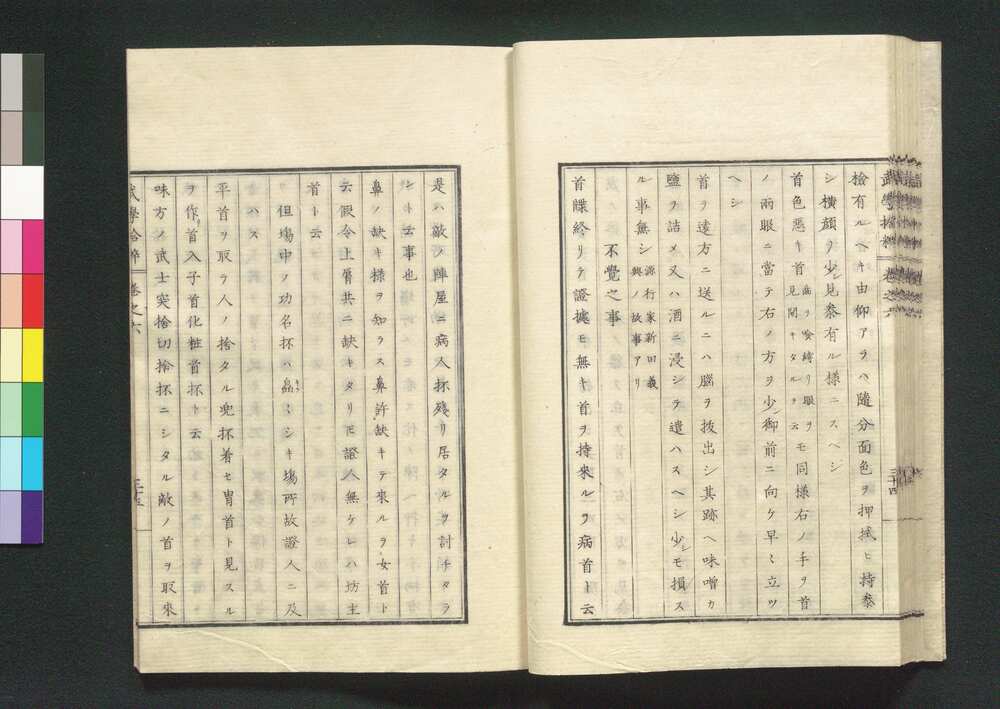 檢有ルヘキ由仰アラハ隨分面色ヲ押拭ヒ持參
シ横顔ヲ少シ見參有ル様ニスヘシ
首色惡キ首齒ヲ喰縛リ眼ヲ見開キタルヲ云モ同様右ノ手ヲ首
ノ兩眼ニ當テ右ノ方ヲ少シ御前ニ向ケ早ミ立ツ
ヘシ
首ヲ遠方ニ送ルニハ腦ヲ抜出シ其跡ヘ味噌カ
鹽ヲ詰メ又ハ酒ニ浸シテ遣ハスヘシ少シモ損ス
ル事無シ源行家新田義興ノ故事アリ
不覺之事
首牒終リテ證據モ無キ首ヲ持來ルヲ病首ト云
是ハ敵ノ陣屋ニ病人抔殘リ居タルヲ討チタラ
シト云事也
鼻ノ缺キ様ヲ知ラス鼻許缺キテ來ルヲ女首ト
云假令上脣共ニ缺キタリモ證人無ケレハ坊主
首ト云
但場中ノ功名抔ハシキ場所故證人ニ及
ハス
平首ヲ取ラ人ノ捨タル兜抔着セ冑首ト見スル
ヲ作首入子首化粧首抔ト云
味方ノ武士突捨切捨抔ニシタル敵ノ首ヲ取來
武學拾粹 卷之六